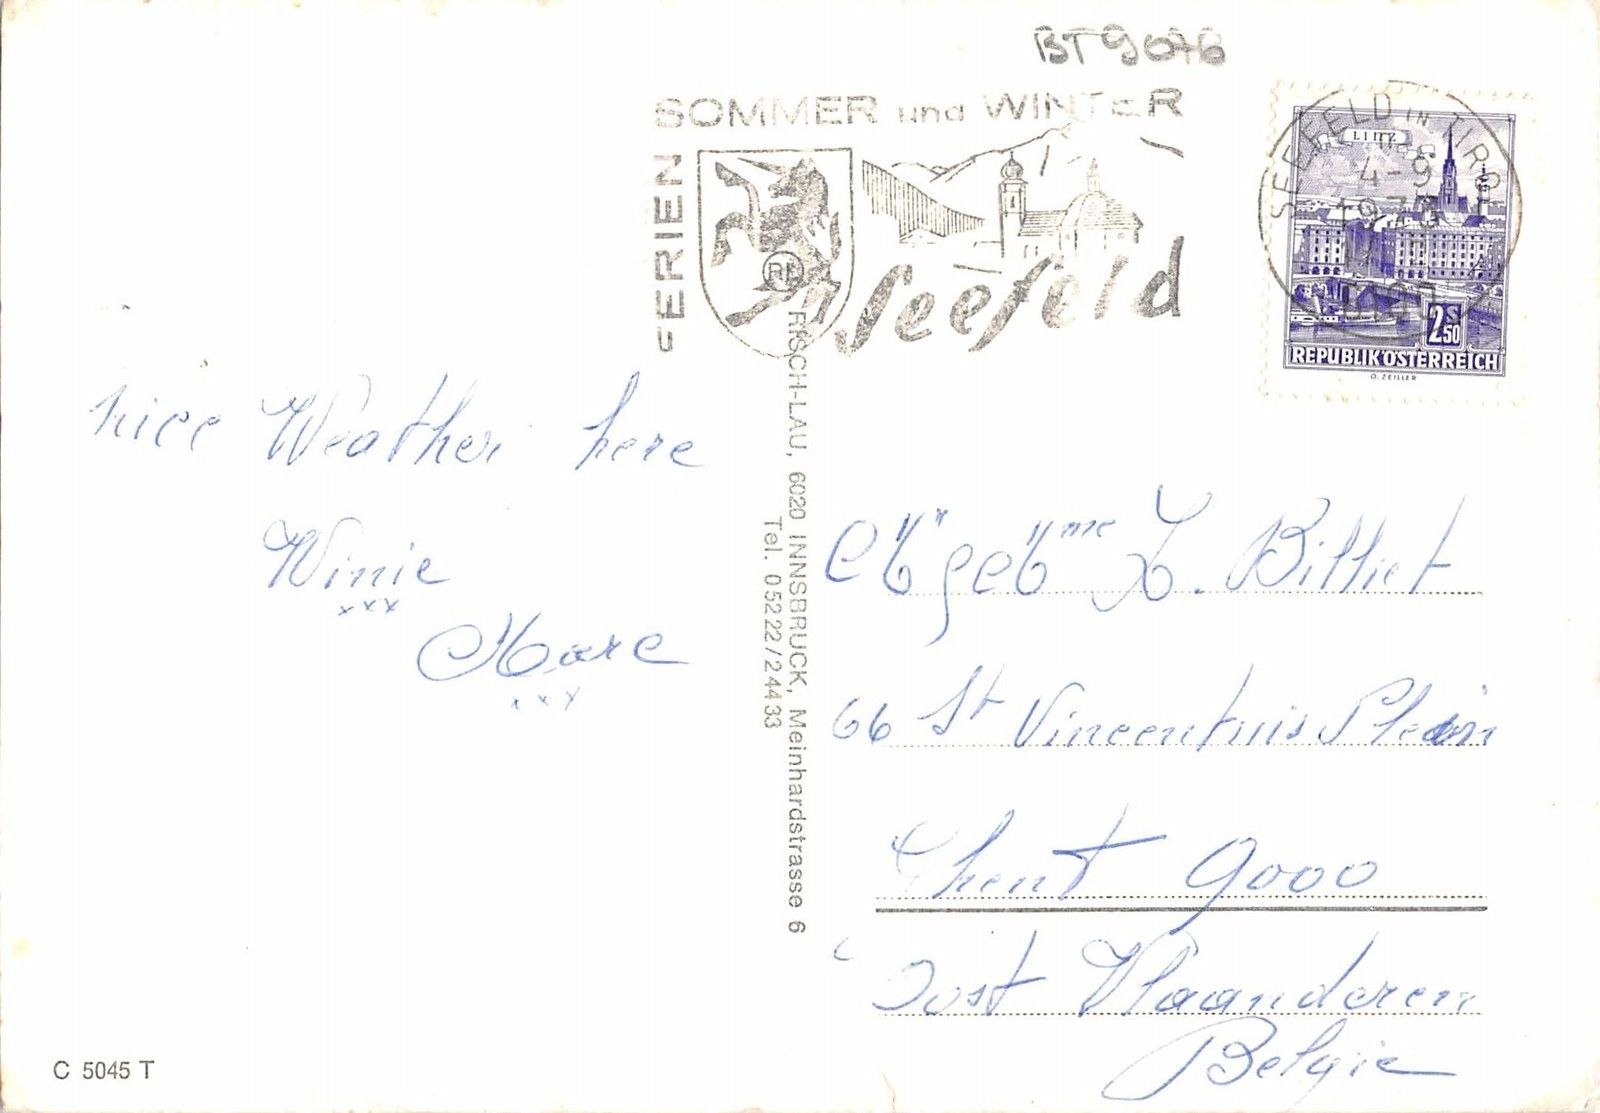 BT 9076
SOMMER und WINTER
FERIEN
Seefeld
SEEFELD IN TIROL
4-9
LINZ
2 S 50
REPUBLIK ÖSTERREICH
O. ZEILLER
nice Weather here
Winie
xxx
Marc
xxx
RISCH-LAU, 6020 INNSBRUCK, Meinhardstrasse 6
Tel. 0 52 22 / 2 44 33
Billiet
66 St Vincentius Plein
Ghent 9000
Oost Vlaanderen
Belgie
C 5045 T